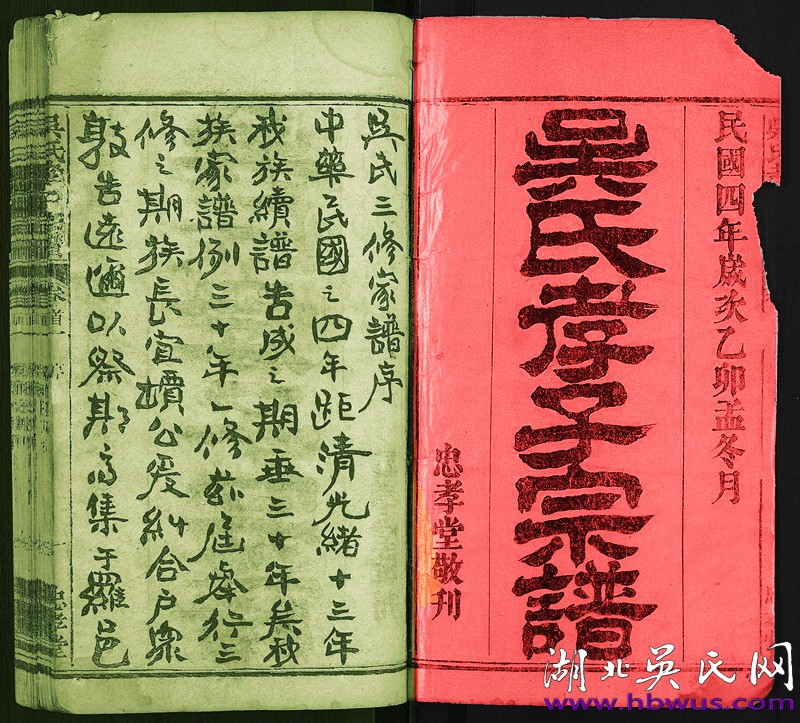 民國四年歲次乙卯孟冬月
吳氏孝子宗譜
忠孝堂敬刊
吳氏三修家譜序
中華民國之四年距清光緒十三年
我族續譜告成之期垂三十年矣秋
族家譜例三十年一修茲屆舉行三
修之期族長宜壎公爰糾合戶眾
敦告遠邇以祭期高集于羅邑
忠孝堂
湖北吳氏网
www.hbwus.com